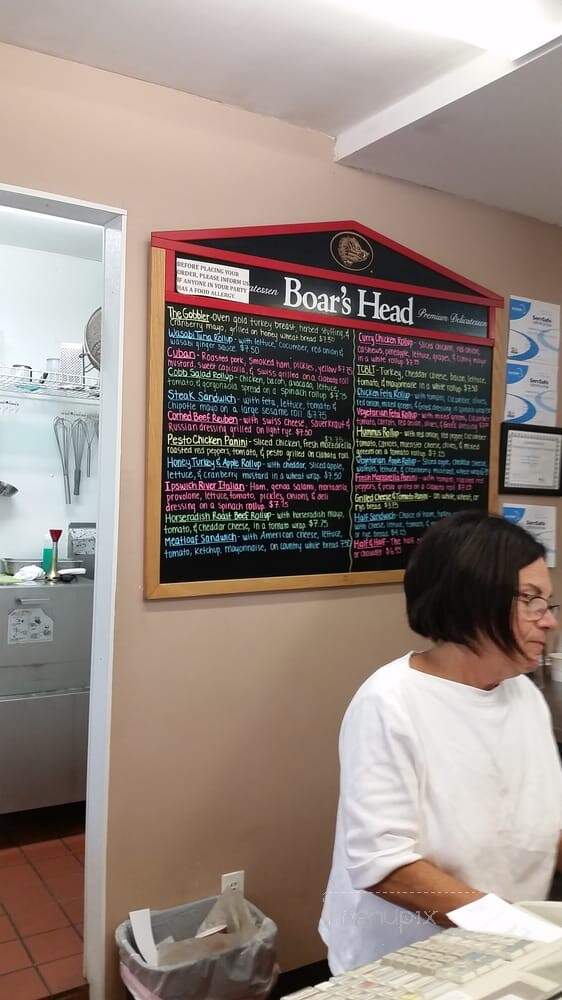 BEFORE PLACING YOUR
ORDER, PLEASE INFORM US
IF ANYONE IN YOUR PARTY
HAS A FOOD ALLERGY.
Boar's Head
Premium Delicatessen
The Gobbler-oven gold turkey breast, herbed stuffing &
cranberry mayo, grilled on honey wheat bread $7.50
Wasabi Tuna Rollup- with lettuce, cucumber, red onion &
wasabi ginger sauce $7.50
Cuban- Roasted pork, smoked ham, pickles, yellow
mustard, sweet capicolla, & swiss grilled on a ciabatta roll $7.75
Cobb Salad Rollup- chicken, bacon, avocado, lettuce,
tomato, & gorgonzola spread on a spinach rollup $7.75
Steak Sandwich- with feta, lettuce, tomato &
Chipotle mayo on a large sesame roll $7.75
Corned Beef Reuben- with swiss cheese, sauerkraut &
Russian dressing grilled on light rye $7.50
Pesto Chicken Panini- Sliced chicken, fresh mozzarella
roasted red peppers, tomato, & pesto grilled on ciabatta roll
Honey Turkey & Apple Rollup- with cheddar, sliced apple,
lettuce, & cranberry mustard in a wheat wrap $7.50
Ipswich River Italian- Ham, genoa salami, mortadella,
provolone, lettuce, tomato, pickles, onions, & deli
dressing on a spinach rollup $7.25
Horseradish Roast Beef Rollup- with horseradish mayo,
tomato, & cheddar cheese, in a tomato wrap $7.75
Meatloaf Sandwich- with American cheese, lettuce,
tomato, ketchup, mayonnaise, on country white bread 7.50
Curry Chicken Rollup- sliced chicken, red onion,
cashews, pineapple, lettuce, grapes, & curry mayo
in a white rollup $7.50
TCBLT- Turkey, cheddar cheese, bacon, lettuce,
tomato, & mayonnaise in a white rollup $7.50
Chicken Feta Rollup- with tomatoes, cucumber, olives,
Vegetarian Feta Rollup- with mixed greens, cucumber
Hummus Rollup- with red onion, red pepper, cucumber
tomato, carrots,
greens on a tomato rollup
Vegetarian Apple Rollup- Sliced apple, cheddar cheese,
Fresh Mozzarella Panini- with tomato, roasted red
peppers, & pesto grilled on a ciabatta roll
Grilled Cheese & Tomato Panini- on white, wheat, or
rye bread $3.75
Half Sandwich- Choice of ham,
with cheese, lettuce, tomato, &
or rye bread
Half & Half- The half
or chowder $6.95
ServSafe
ServSafe
menupix